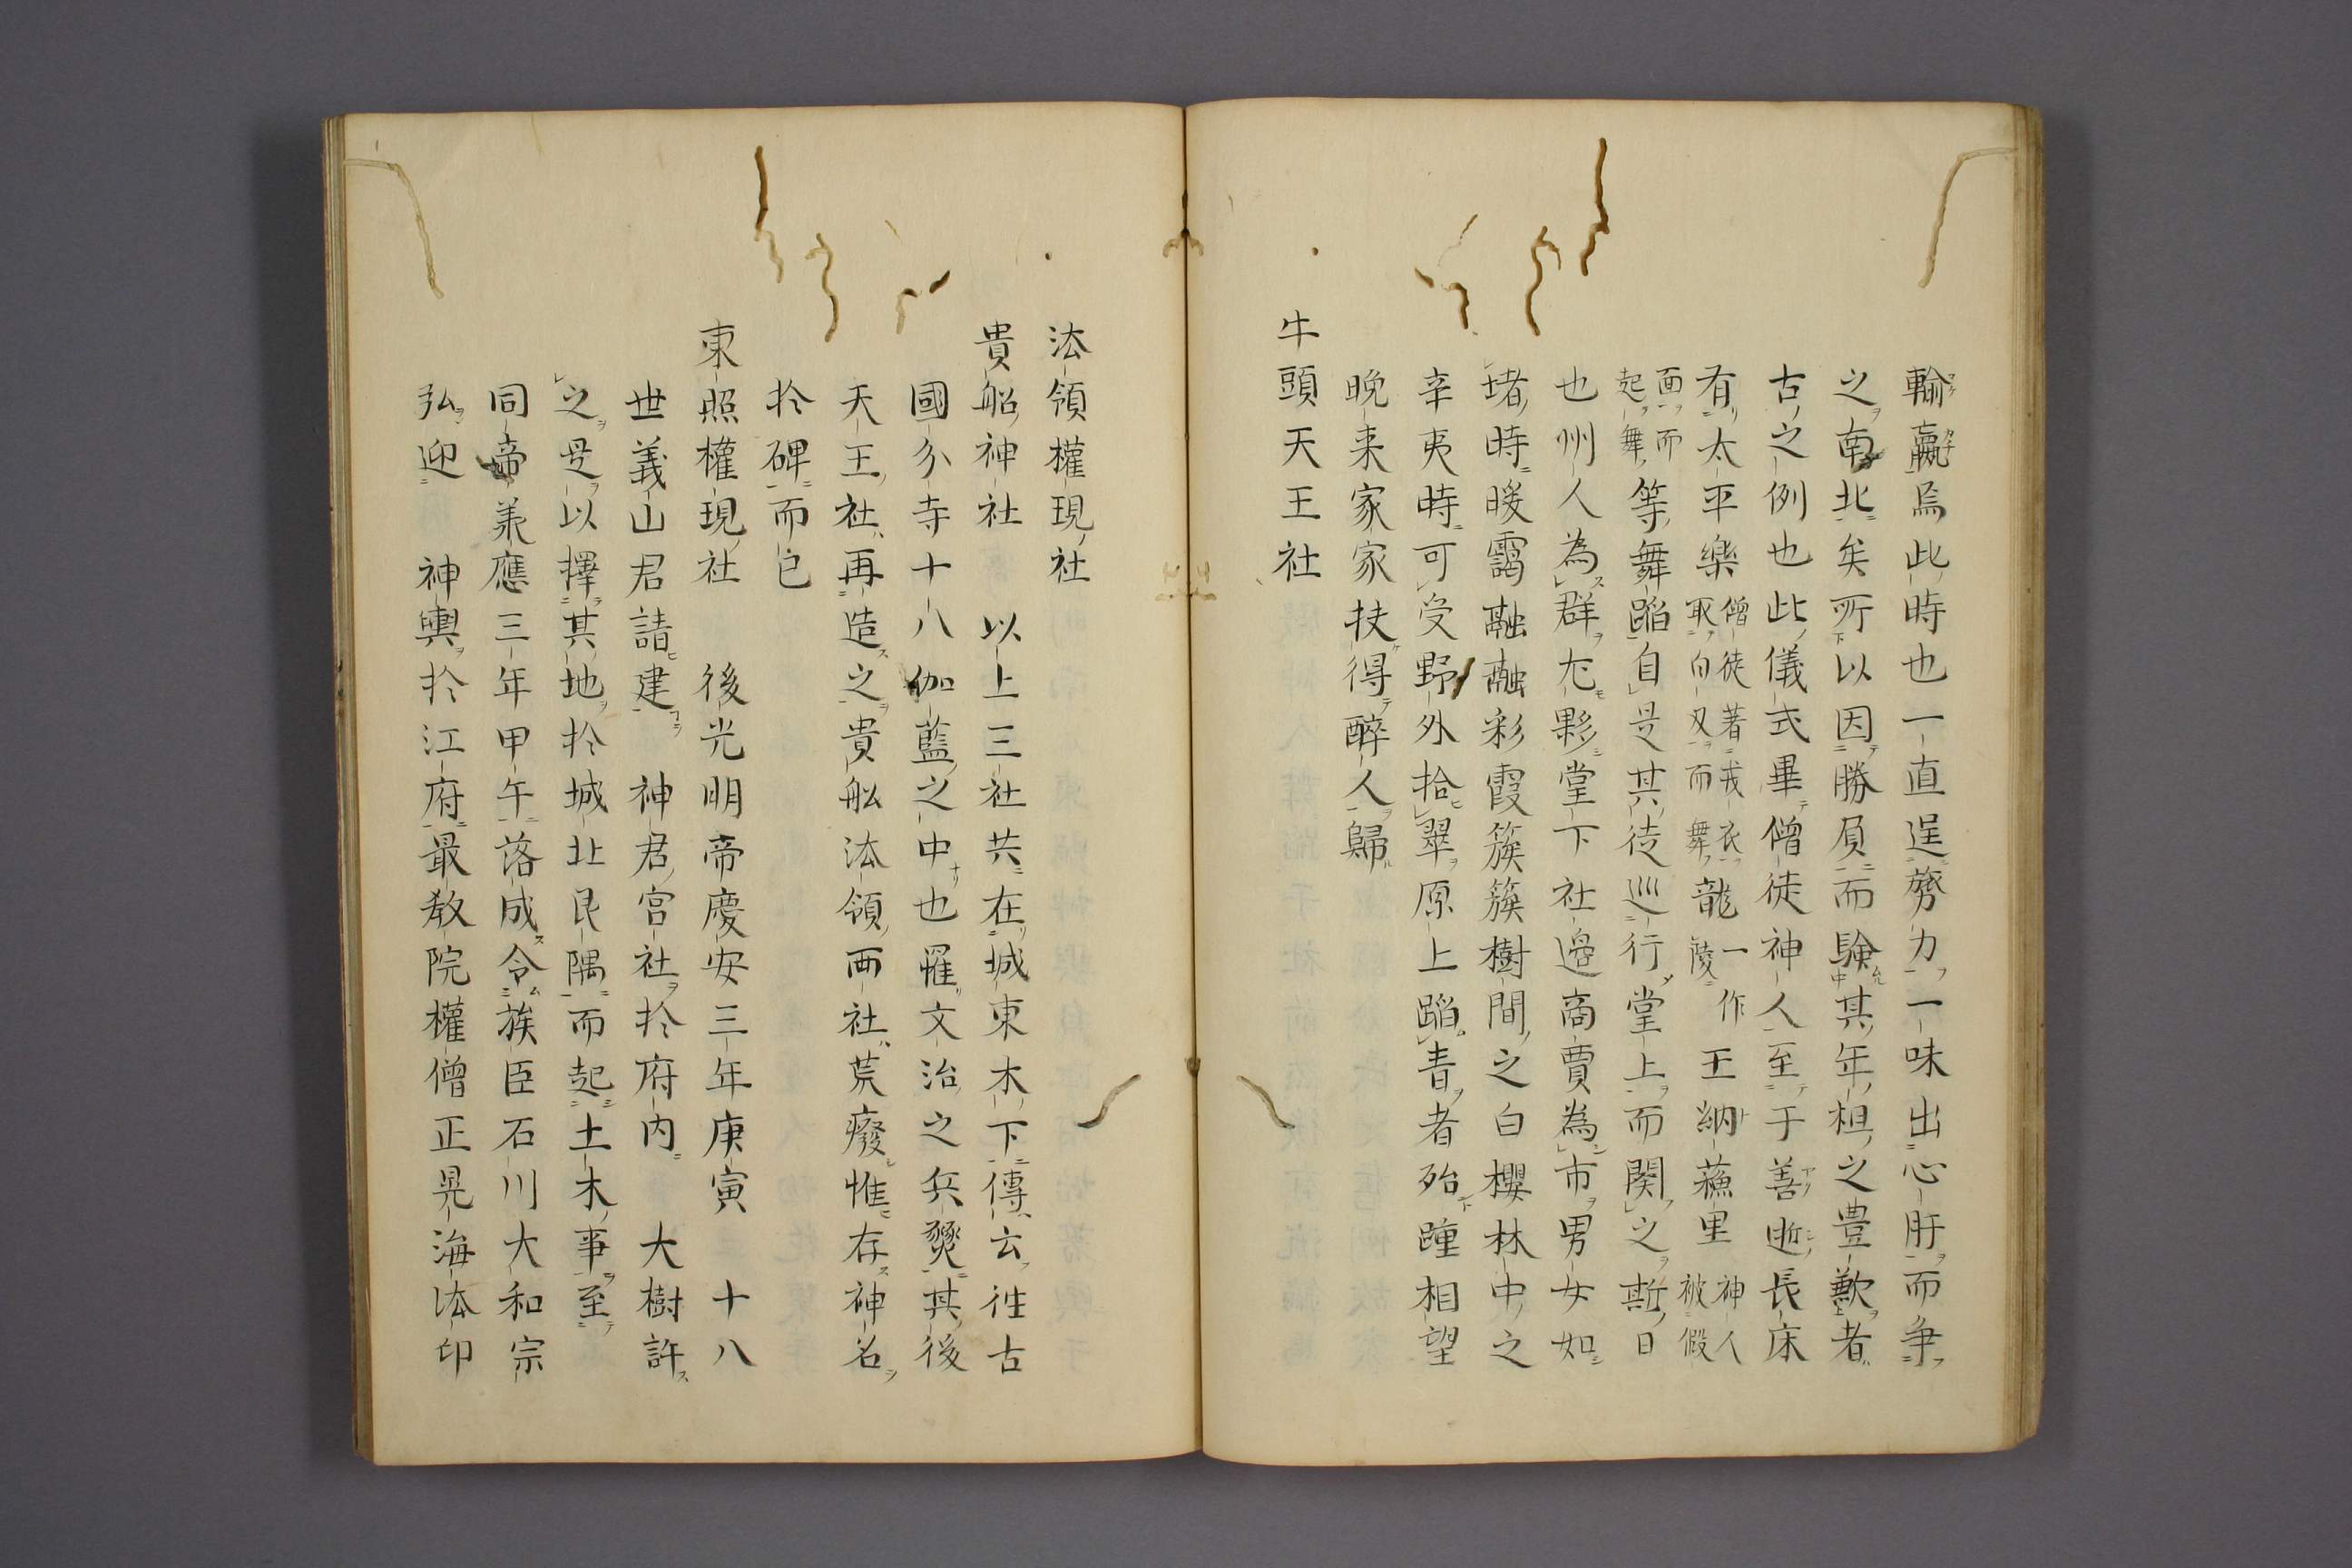 輸贏焉此時也一直逞勢力一味出心肝而争
之南北矣所以因勝負而驗其年柤之豊歉者
古之例也此儀式畢僧徒神人至于善逝長床
有太平樂僧徒著戎衣取白刄而舞龍一作陵王納蘓里神人被假
面而起舞等舞蹈自是其徒巡行堂上而関之斯日
也州人為群尤夥堂下社邉商賈為市男女如
堵時暖靄融融彩霞簇簇樹間之白櫻林中之
辛夷時可受野外拾翠原上蹈青者殆踵相望
晩来家家扶得醉人歸
牛頭天王社
法領權現社
貴船神社　以上三社共在城東木下傳云徃古
國分寺十八伽藍之中也罹文治之兵燹其後
天王社再造之貴舩法領両社荒癈惟存神名
於碑而已
東照權現社　後光明帝慶安三年庚寅　十八
世義山君請建　神君宮社於府内　大樹許
之是以擇其地於城北艮隅而起土木事至
同帝羕應三年甲午落成令族臣石川大和宗
弘迎　神輿於江府最教院權僧正晃海法印